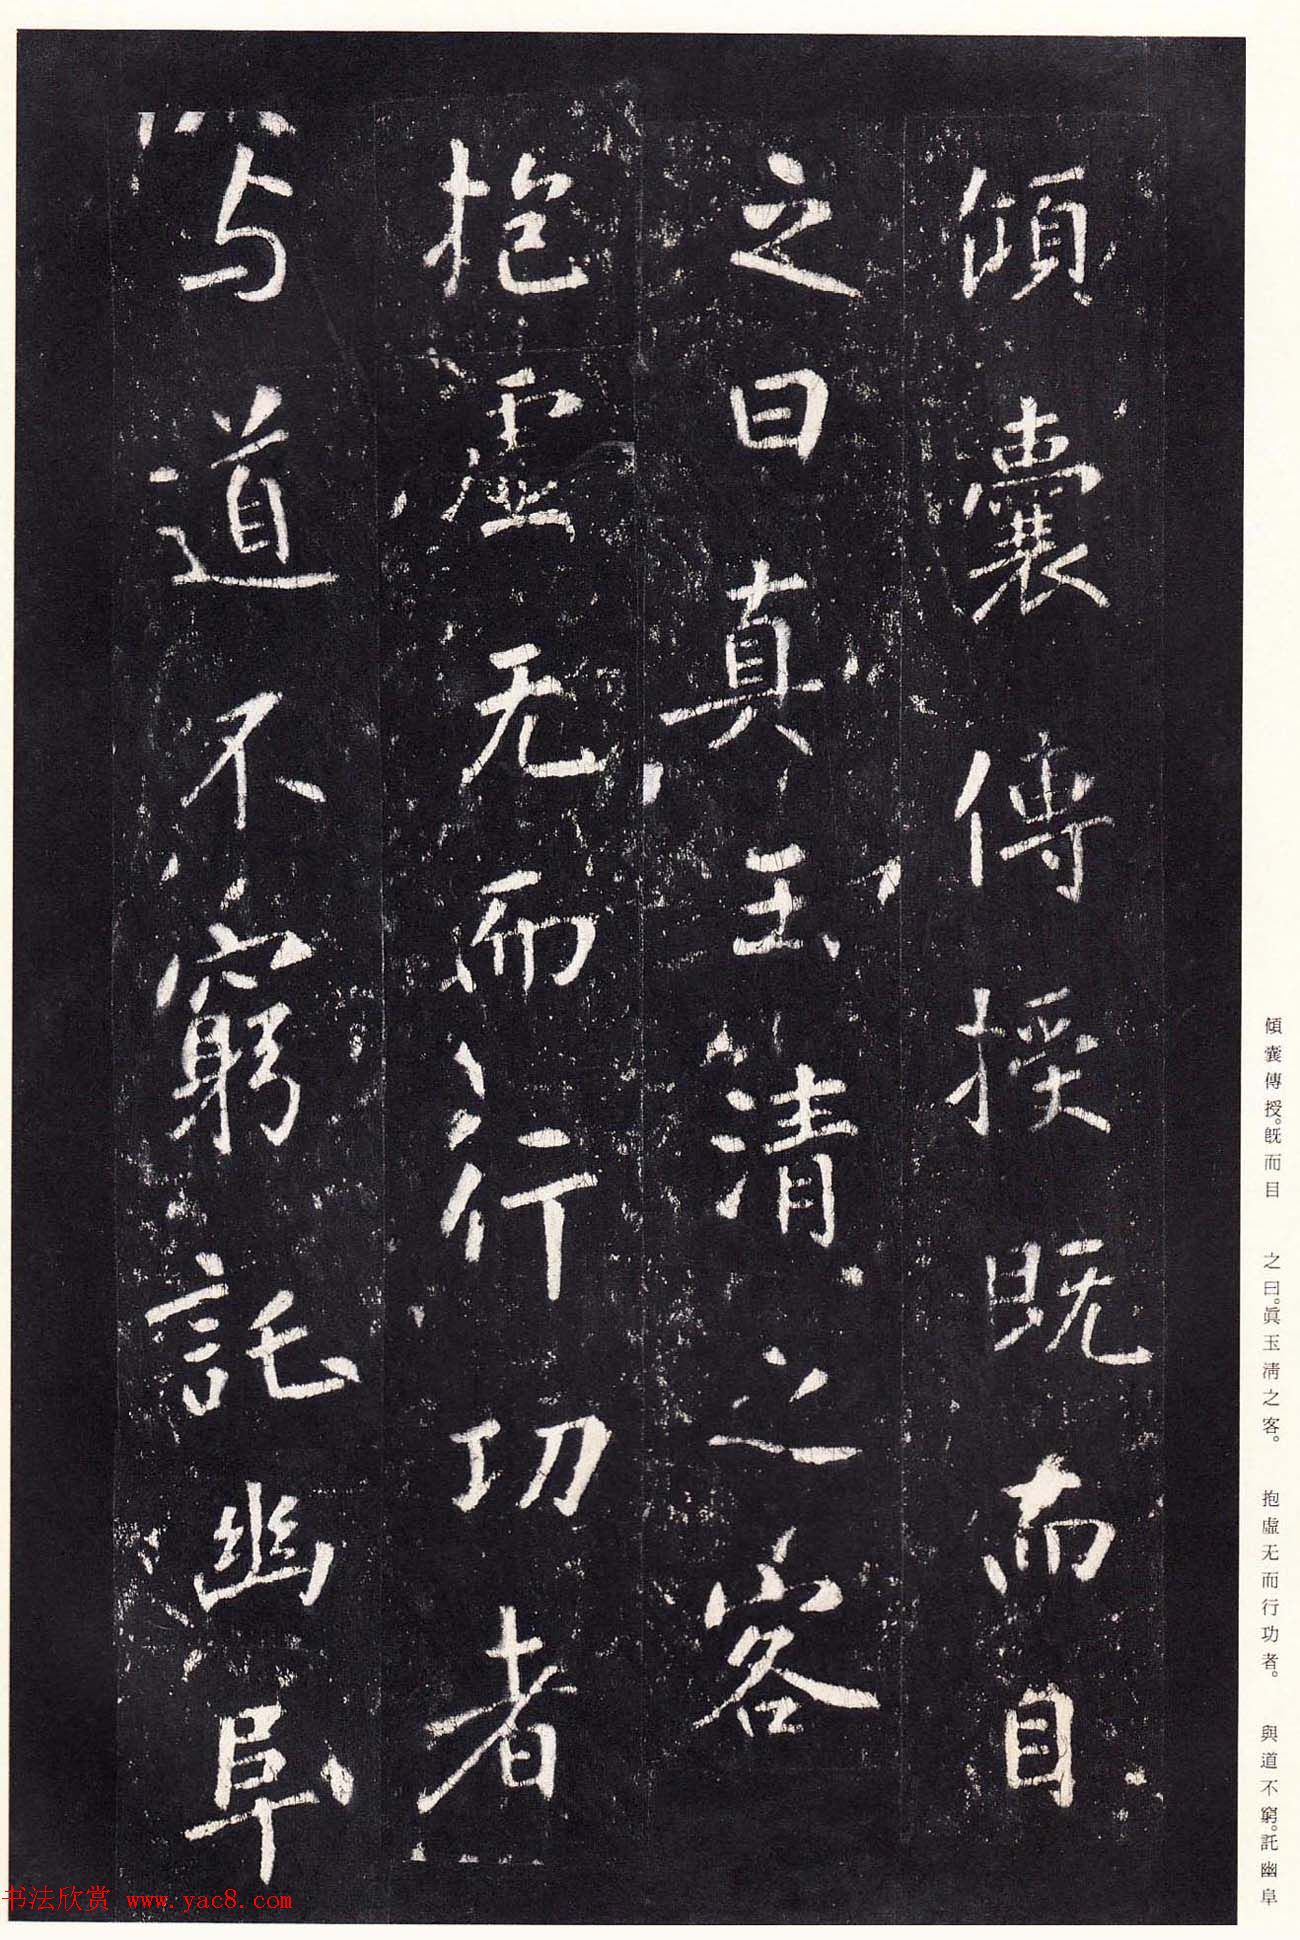 傾囊傳授既而目
之曰真玉清之客
抱虛无而行功者
与道不窮託幽阜
傾囊傳授。既而目　之曰。眞玉淸之客。　抱虛无而行功者。　與道不窮。託幽阜
书法欣赏 www.yac8.com